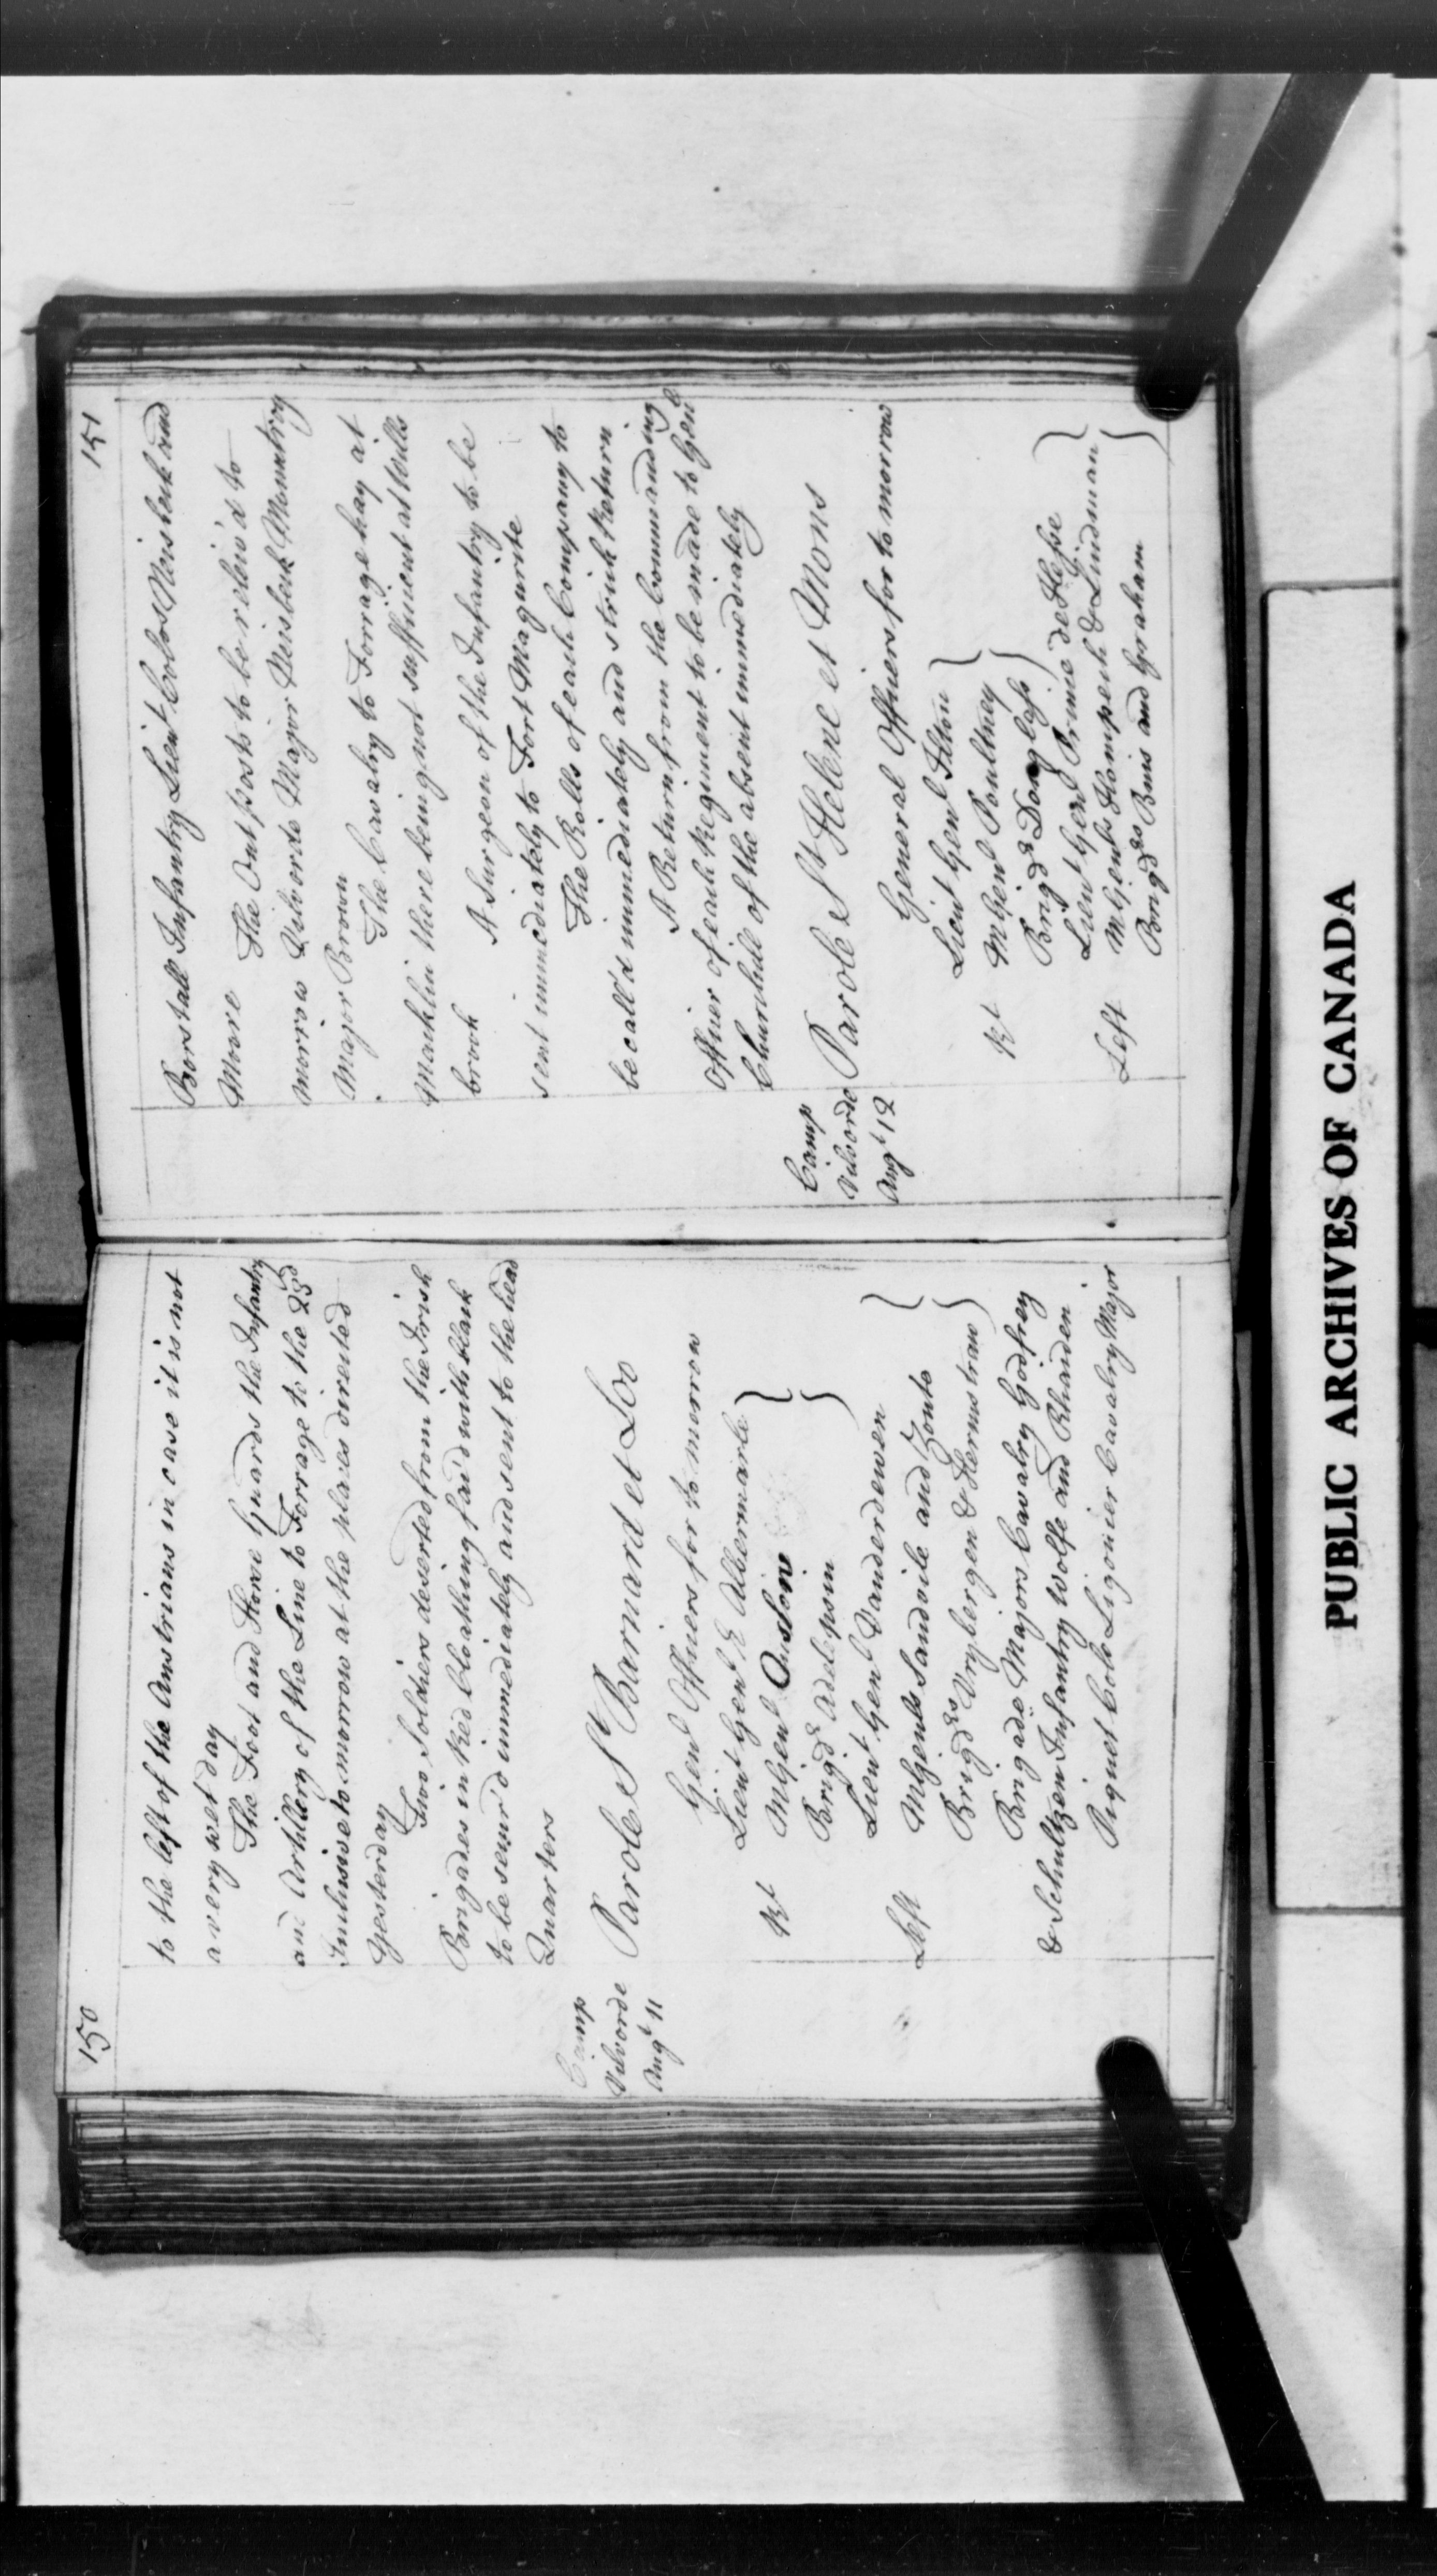 150
to the left of the Austrians in case it is not
a very wet day
The Foot and Horse Guards the Infantry
and Artillery of the Line to Forrage to the 23d
Inclusive to morrow at the places directed
Yesterday
Two Soldiers deserted from the Irish
Brigades in Red Cloathing fac'd with black
to be secur'd immediately and sent to the head
Quarters
Camp
Vilvorde
Augt 11
Parole St Barnard et Loo
Genl Officers for to morrow
Lieut Genl E Albermarle
Rt MGenl Onslow
Brigdr Adelepsin
Lieut Genl Vanderdewen
Left MGenls Sandvile and Zonto
Brigdrs Vrybergen & Hermstraw
Brigade Majors Cavalry Godfrey
& Schultzen Infantry Wolfe and Rhaiden
Piquet Colo Ligonier Cavalry Major
151
Borstall Infantry Lieut Colos Neisbeck and
Moore
The Out posts to be reliev'd to
morrow Vilvorde Major Neisbeck Mountroy
Major Brown
The Cavalry to Forrage hay at
Machlin there being not sufficient at Wills
brook
A Surgeon of the Infantry to be
sent immediately to Fort Magurite
The Rolls of each Company to
be call'd immediately and strick Return
A Return from the Commanding
Officer of each Regiment to be made to Genl
Churchile of the absent immediately
Camp
Vilvorde
Augt 12
Parole St Helene et Mons
General Officers for to morrow
Lieut Genl Hilton
Rt MGenl Poultney
Brigdr Douglass
Lieut Genl Prince de Hesse
Left MGenls Hompesch & Lindman
Brigdrs Buis and Graham
PUBLIC ARCHIVES OF CANADA